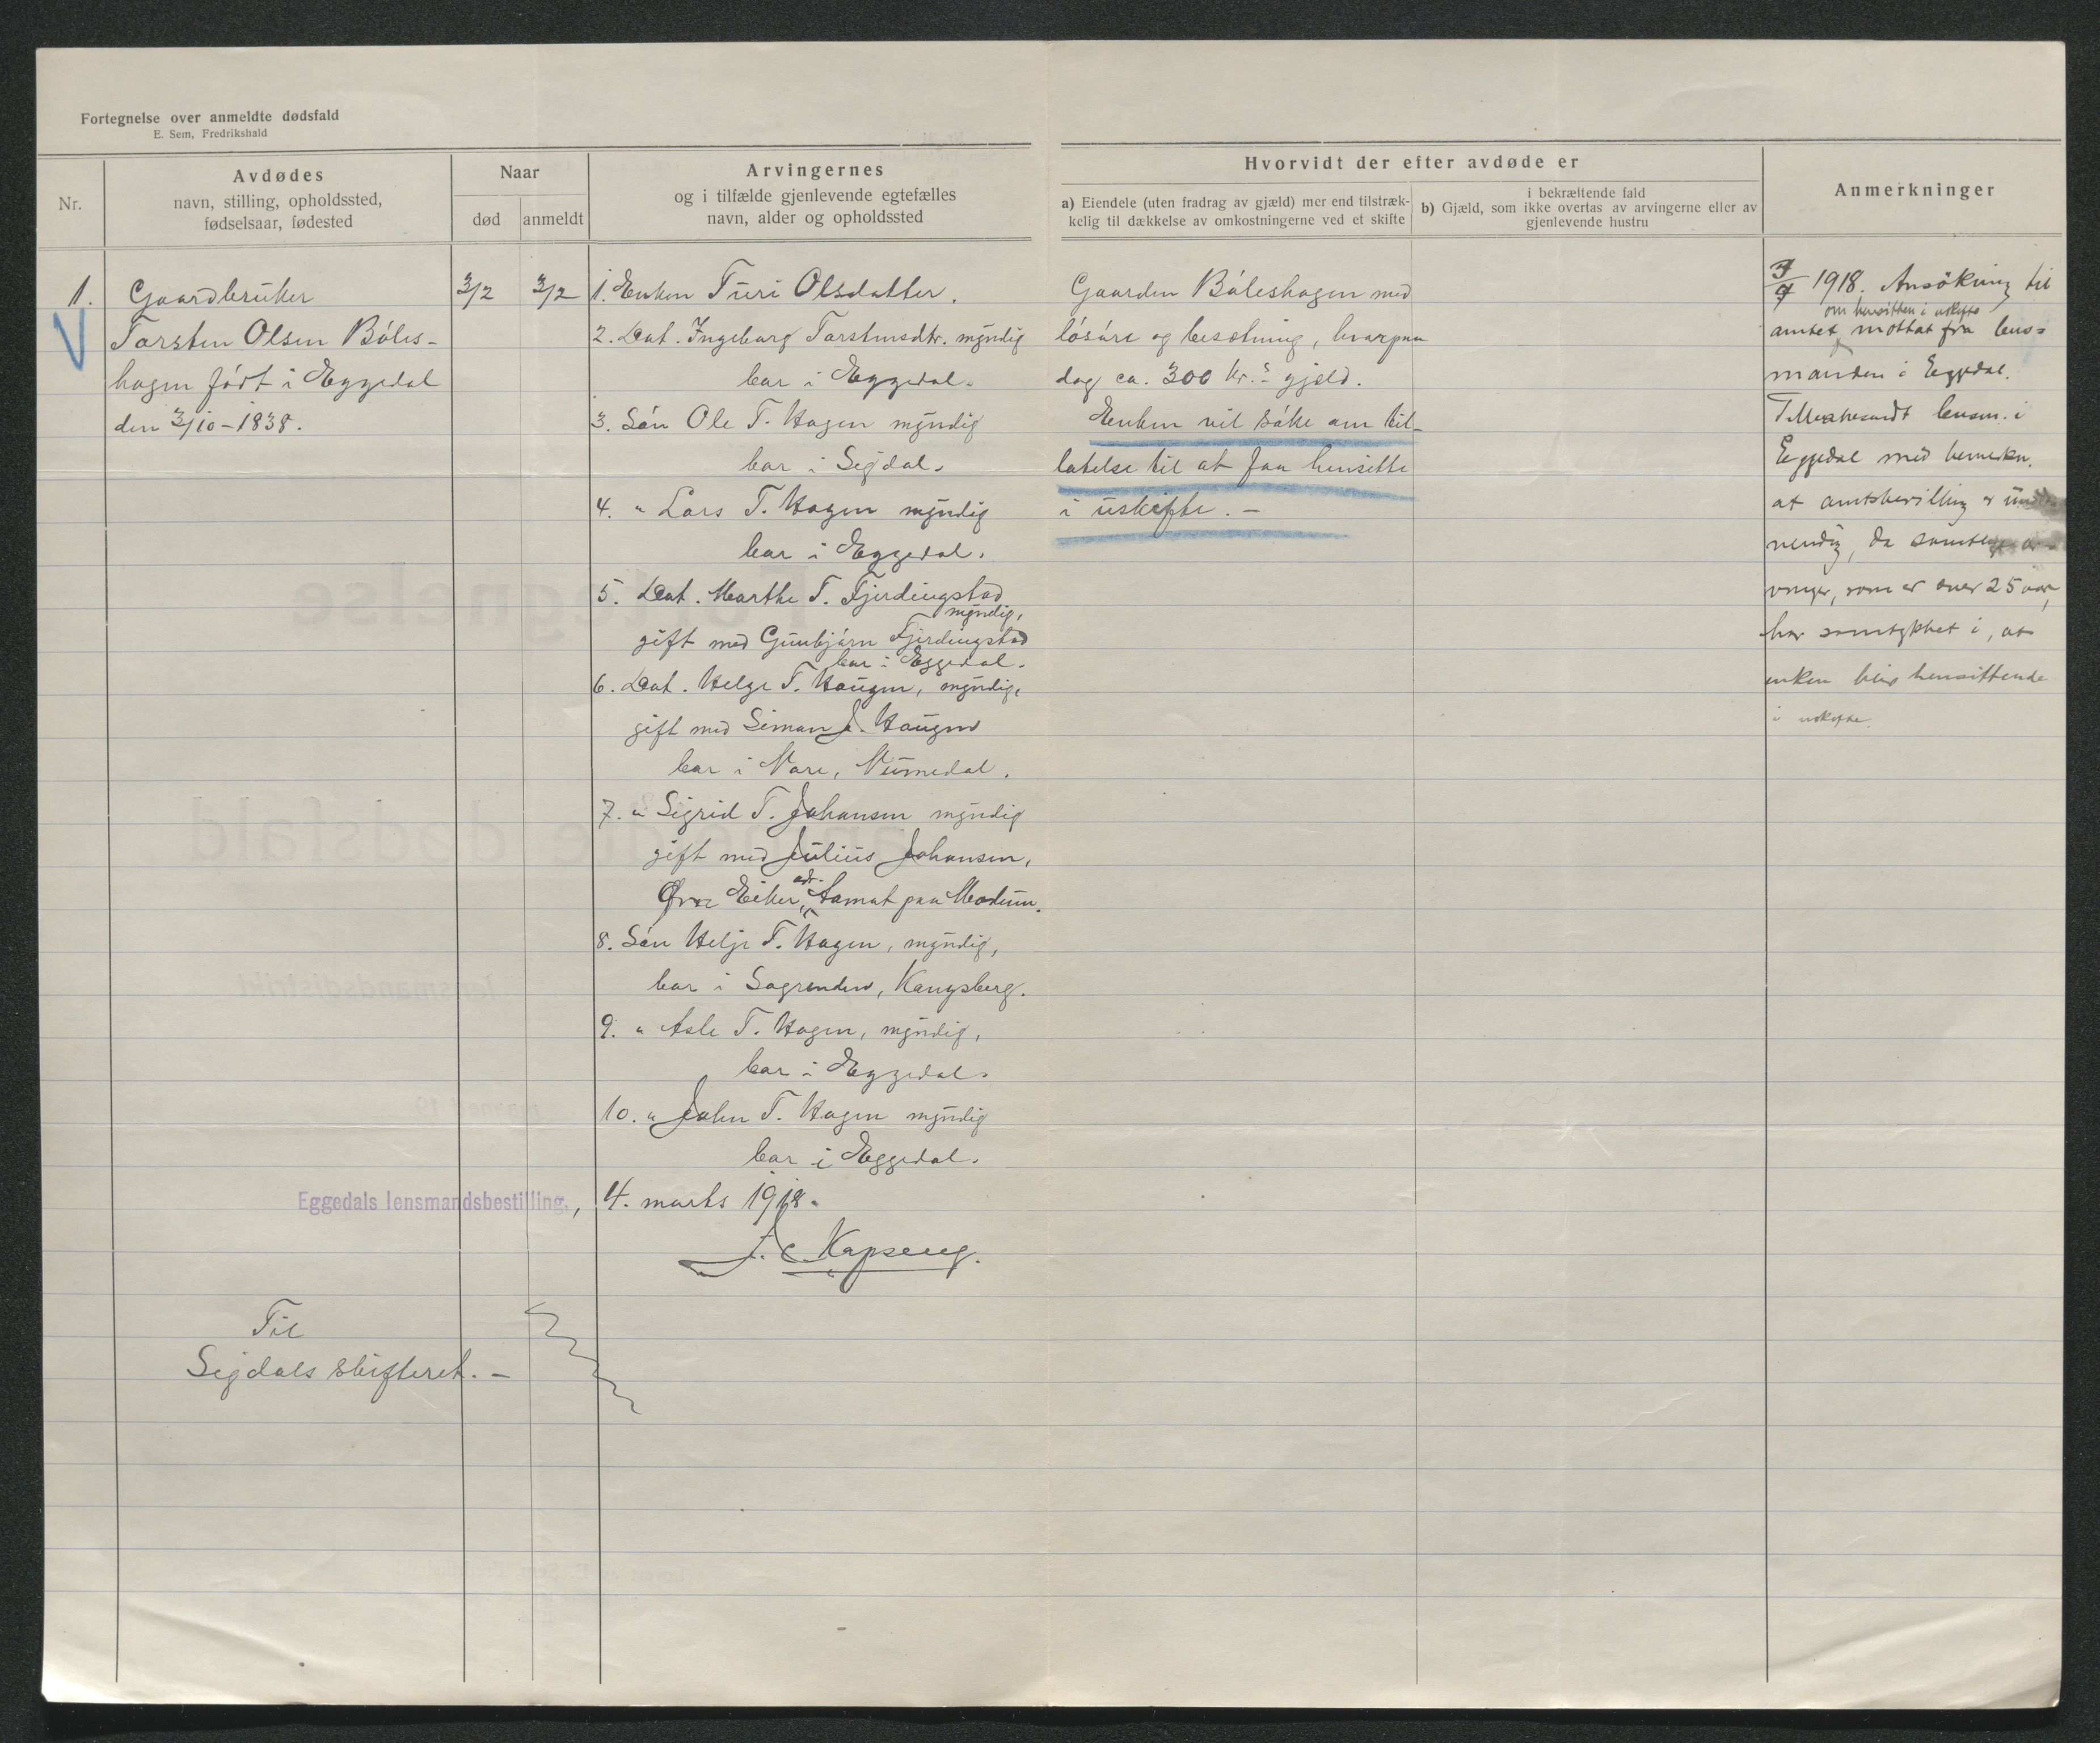 Fortegnelse over anmeldte dødsfald
E. Sem, Fredrikshald
Nr.
Avdødes
navn, stilling, opholdssted,
fødselsaar, fødested
Naar
død
anmeldt
Arvingernes
og i tilfælde gjenlevende egtefælles
navn, alder og opholdssted
Hvorvidt der efter avdøde er
a) Eiendele (uten fradrag av gjæld) mer end tilstræk-
kelig til dækkelse av omkostningerne ved et skifte
i bekræftende fald
b) Gjæld, som ikke overtas av arvingerne eller av
gjenlevende hustru
Anmerkninger
1.
Gaardbruker
Torsten Olsen Båles-
hagen født i Eggedal
den 3/10-1838.
3/2
3/2
1. Enken Turi Olsdatter.
2. Dat. Ingeborg Torstensdtr. myndig
bor i Eggedal.
3. Søn Ole T. Hagen myndig
bor i Sigdal.
4. " Lars T. Hagen myndig
bor i Eggedal.
5. Dat. Marthe T. Fjerdingstad
myndig,
gift med Gunbjørn Fjerdingstad
bor i Eggedal.
6. Dat. Helge T. Haugen, myndig,
gift med Simon J. Haugen
bor i Nore, Numedal.
7. " Sigrid T. Johansen myndig
gift med Julius Johansen,
Øvre Eiker, adr. Åamot paa Modum.
8. Søn Helje T. Hagen, myndig,
bor i Sagrenden, Kongsberg.
9. " Asle T. Hagen, myndig,
bor i Eggedal.
10. " John T. Hagen myndig
bor i Eggedal.
Eggedals lensmandsbestilling, 4. marts 1918.
J. C. Kapseng.
Til
Sigdals skifteret. -
Gaarden Båleshagen med
løsøre og besætning, hvorpaa
dog ca. 300 kr.s gjæld.
Enken vil søke om til-
latelse til at faa hensitte
i uskifte. -
7/9 1918. Ansökning til
om hensitten i uskifte
amtet mottat fra lens-
manden i Eggedal.
Tilbakesendt lensm. i
Eggedal med bemerkn.
at amtsbevilling er
nendig, da samtlige ar-
vinger, som er over 25 aar,
har samtykket i, at
enken blir hensittende
i uskifte.